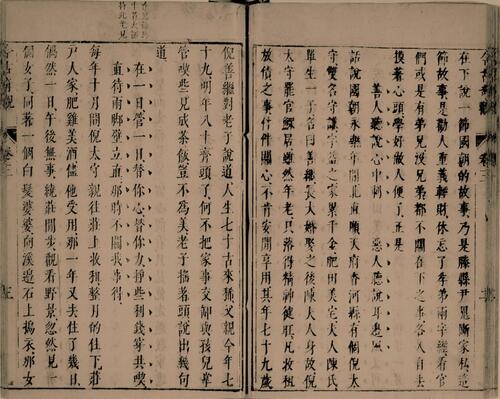 在下說一節國朝的故事乃是滕縣尹鬼斷家私這
節故事是勸人重義輕財休忘了孝弟兩字經看官
們或是有弟兄沒兄弟都不關在下之事各人自去
摸著心頭學好做人便了正是
善人聽說心中刺 惡人聽說耳邊風
話說國朝永樂年間北直順天府香河縣有個倪太
守雙名守謙字益之家累千金肥田美宅夫人陳氏
單生一子名曰善繼長大婚娶之後陳夫人身故倪
太守罷官鰥居雖然年老只落得精神健旺凡收租
放債之事件件關心不肯安閒享用其年七十九歲
倪善繼對老子說道人生七十古來稀父親今年七
十九明年八十齊頭了何不把家事交卸與孩兒掌
管喫些見成茶飯豈不為美老子搖著頭說出幾句
道
在一日管一日替你心替你力掙些利錢穿共喫
直待兩腳壁立直那時不關我事得
每年十月間倪太守親往莊上收租整月的住下莊
戶人家肥雞美酒儘他受用那一年又去住了幾日
偶然一日午後無事繞莊閒步觀看野景忽然見一
個女子同著一個白髮婆婆向溪邊石上搗衣那女
卷三